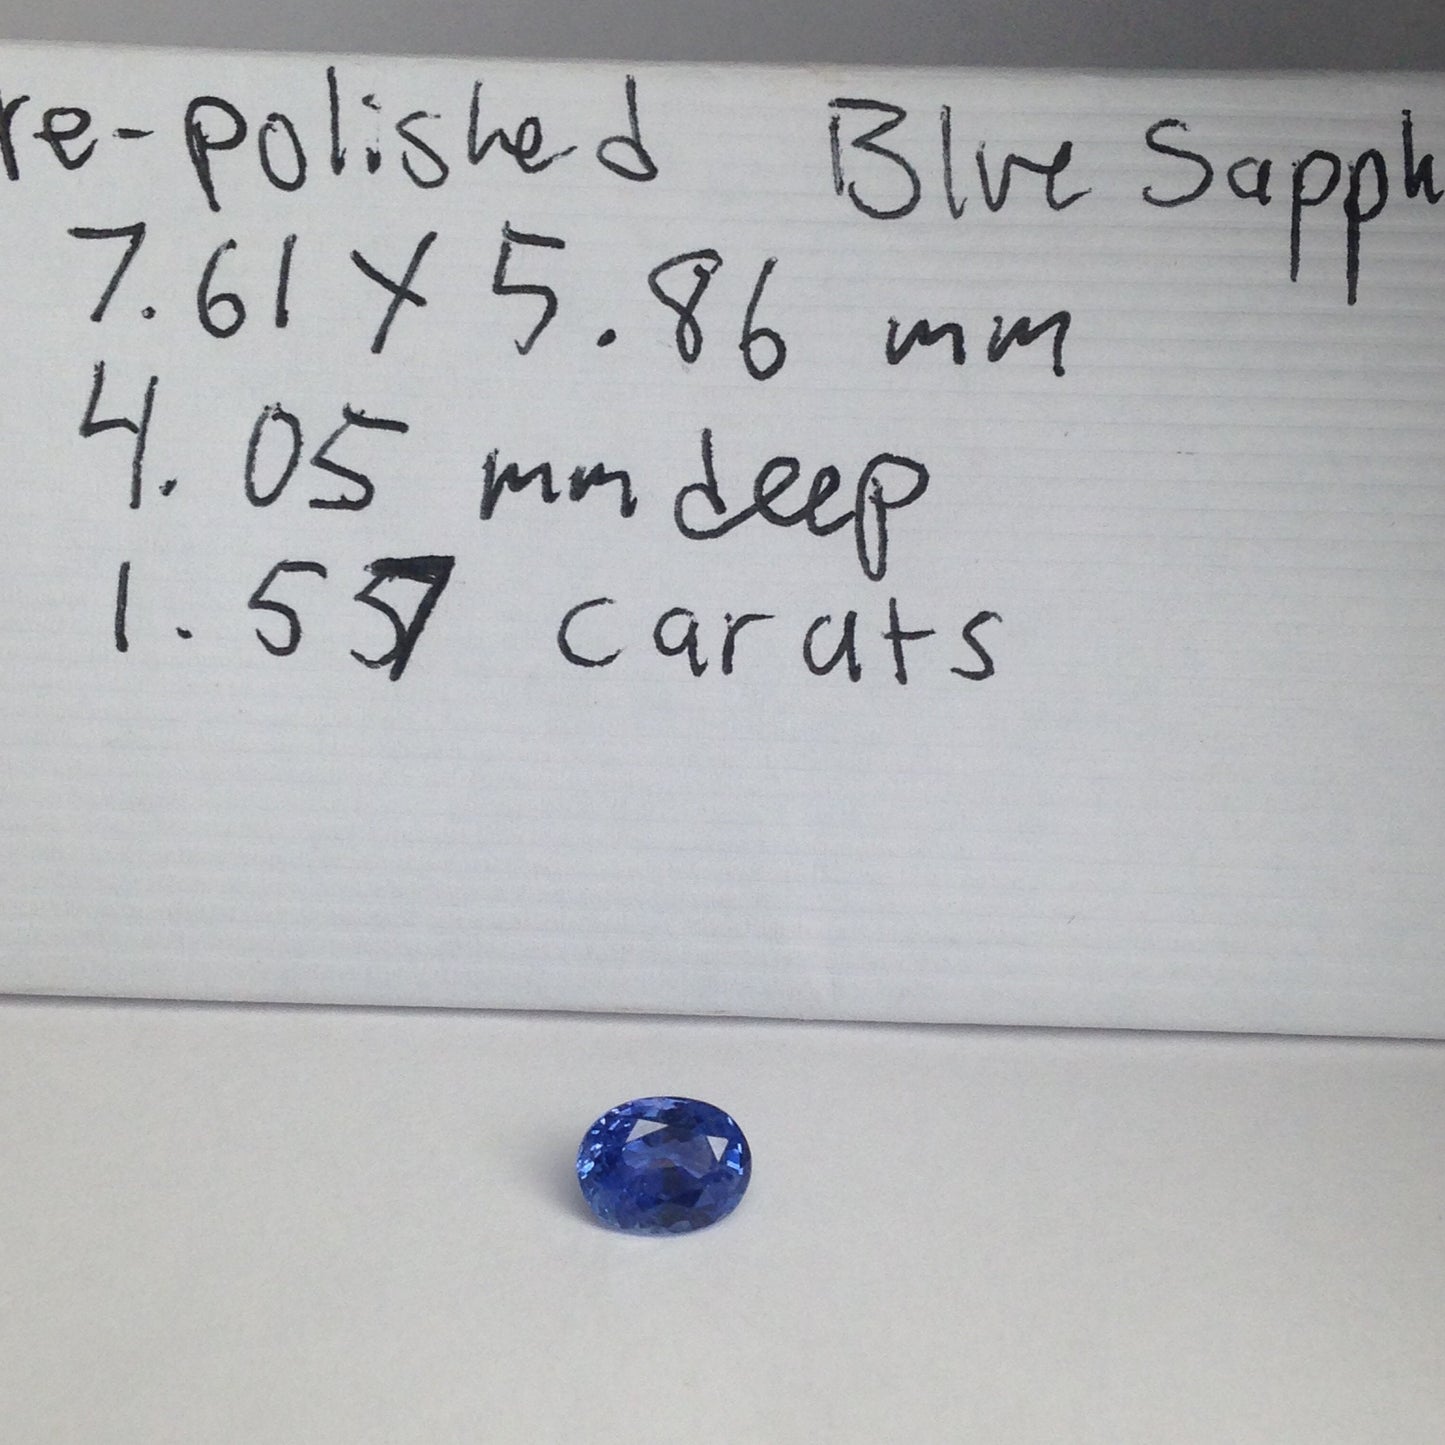 re-polished Blue Sapph
7.61 x 5.86 mm
4.05 mm deep
1.557 carats